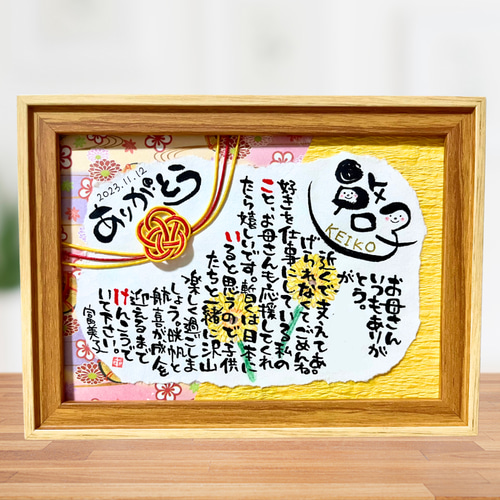 啓子
KEIKO
2023.11.12
ありがとう
お母さん
いつもありが
とう。
が
近くで支えてあ
げられなくごめんね。
好きを仕事にしている私の
こと、お母さんも応援してくれ
たら嬉しいです。暫くは日本に
いると思うので、子供
たちと一緒に沢山
楽しく過ごしま
しょう。帆と
航喜が成人
迎えるまで
けんこうで
いて下さい。
富美子